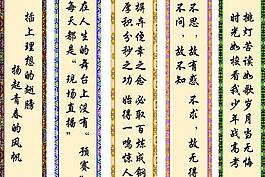 挑灯苦读如歌岁月当无悔
时光如梭看我少年战高考
不思，故有惑 不求，故无得
不问，故不知
摒弃侥幸之念 必取百炼成钢
厚积分秒之功 始得一鸣惊人
在人生的舞台上没有“预赛
每天都是“现场直播”
插上理想的翅膀
扬起青春的风帆